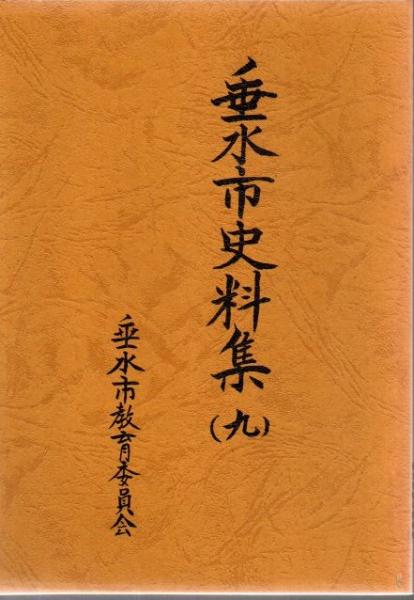 垂水市史料集
(九)
垂水市教育委員会